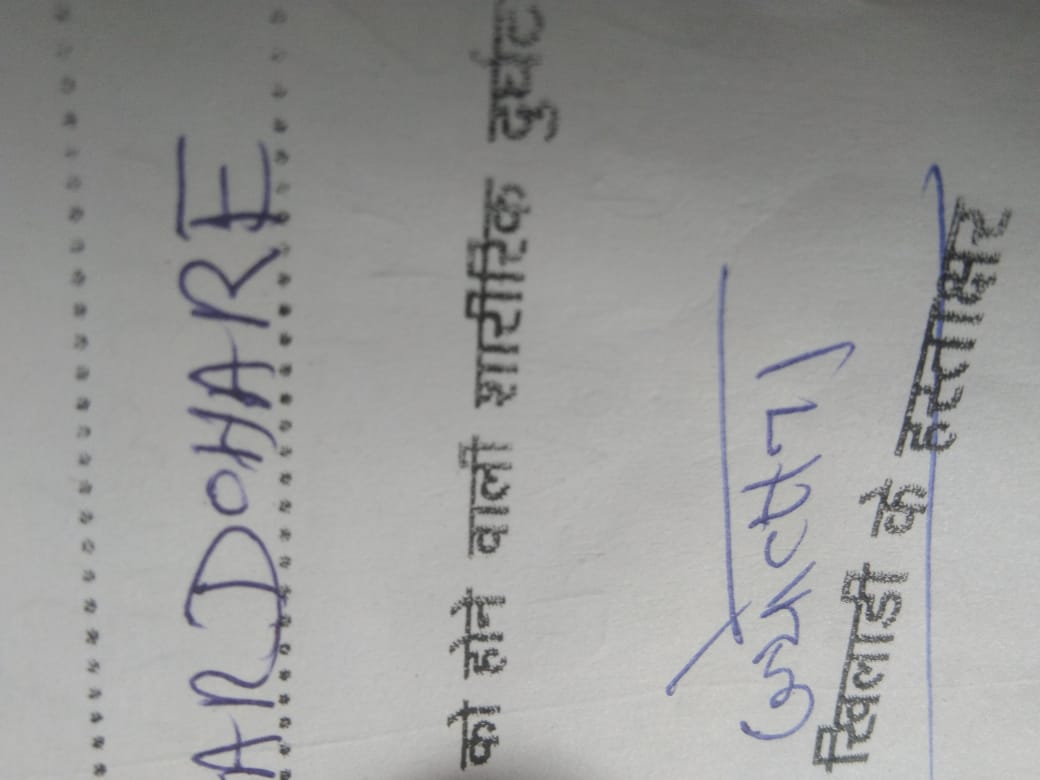 AR DOHARE
को होने वाली शारीरिक दुर्घट
खिलाडी के हस्ताक्षर